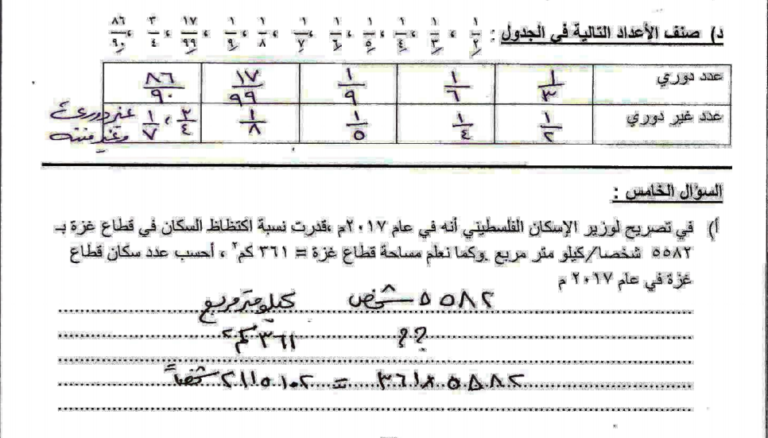 د) صنف الأعداد التالية في الجدول : ١/٢ ، ١/٣ ، ١/٤ ، ١/٥ ، ١/٦ ، ١/٧ ، ١/٨ ، ١/٩ ، ١٧/٩٩ ، ٣/٤ ، ٨٦/٩٠
عدد دوري ١/٣ ١/٦ ١/٩ ١٧/٩٩ ٨٦/٩٠
عدد غير دوري ١/٢ ١/٤ ١/٥ ١/٨ ٣/٤ ، ١/٧ غير دوري
وغير منته
السؤال الخامس :
أ) في تصريح لوزير الإسكان الفلسطيني أنه في عام ٢٠١٧م ،قدرت نسبة اكتظاظ السكان في قطاع غزة بـ
٥٥٨٢ شخصا/كيلو متر مربع .وكما نعلم مساحة قطاع غزة = ٣٦١ كم٢ ، أحسب عدد سكان قطاع
غزة في عام ٢٠١٧ م
٥٥٨٢ شخص كيلومتر مربع
؟؟ ٣٦١ كم٢
٥٥٨٢×٣٦١ = ٢١١٥١٠٢ شخصاً